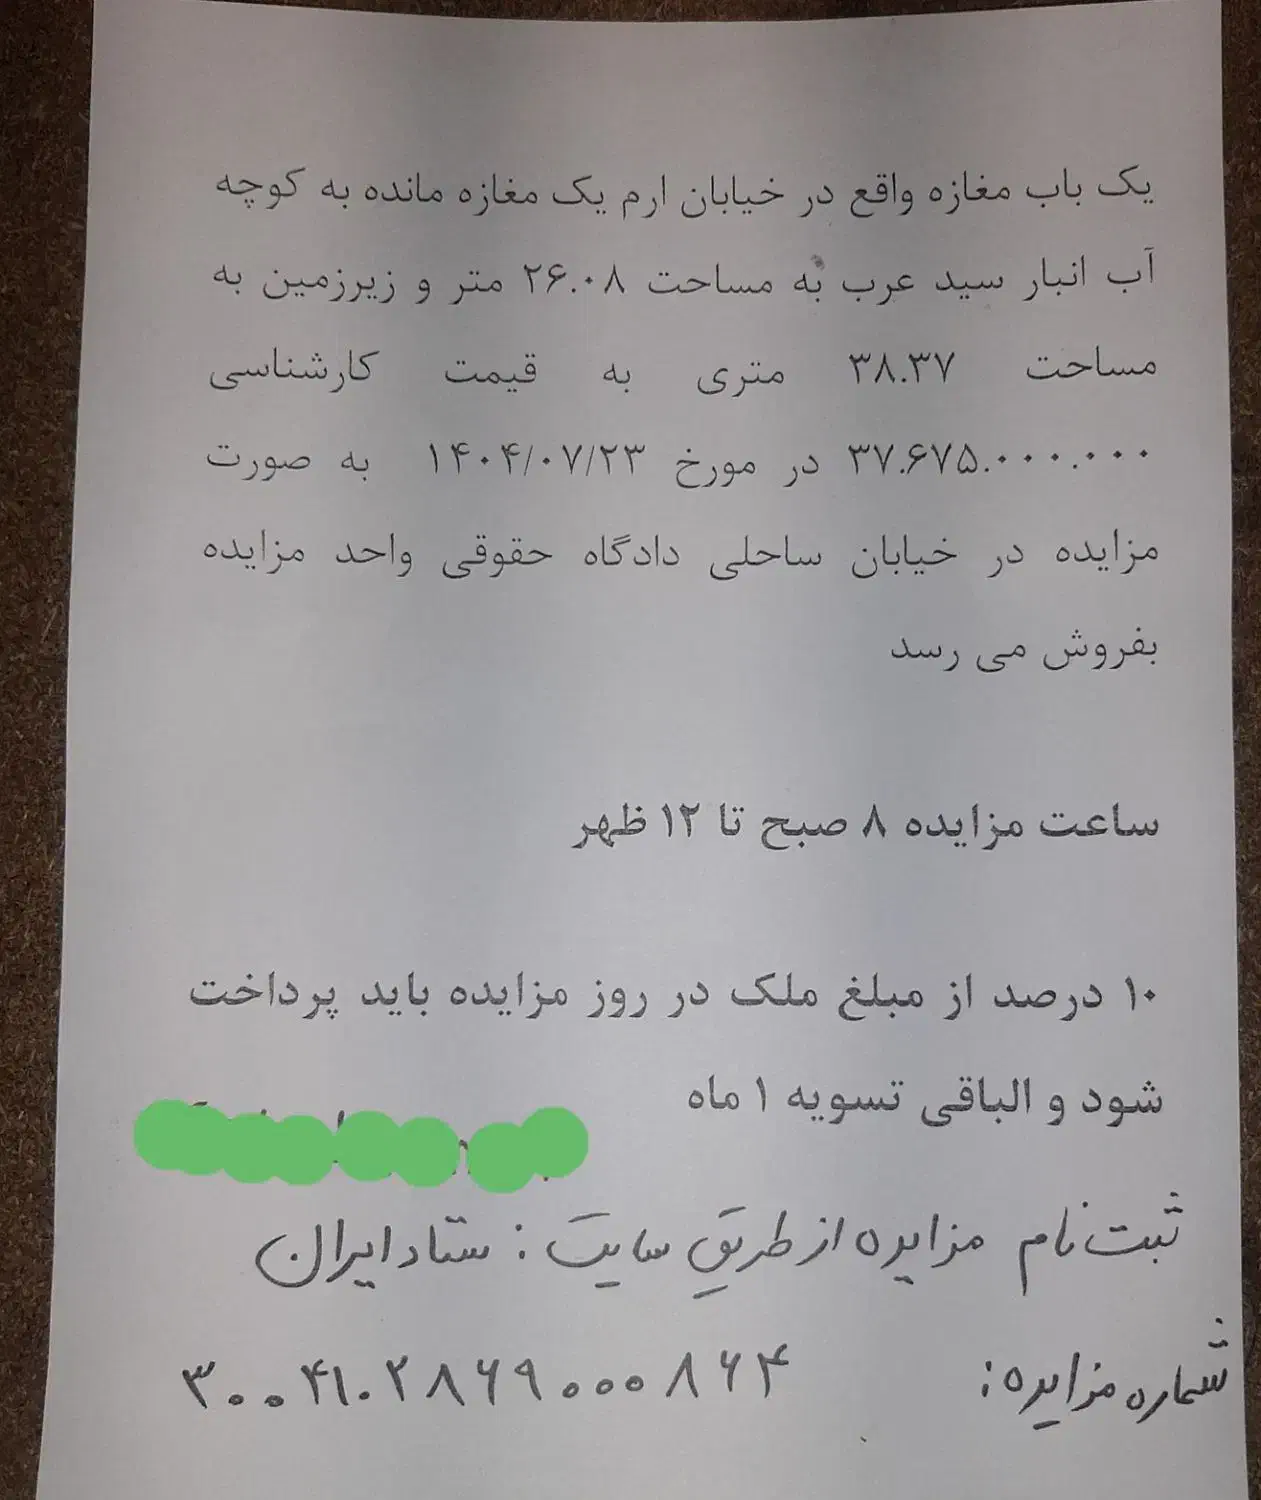 یک باب مغازه واقع در خیابان ارم یک مغازه مانده به کوچه
آب انبار سید عرب به مساحت ۲۶.۰۸ متر و زیرزمین به
مساحت ۳۸.۳۷ متری به قیمت کارشناسی
۳۷.۶۷۵.۰۰۰.۰۰۰ در مورخ ۱۴۰۴/۰۷/۲۳ به صورت
مزایده در خیابان ساحلی دادگاه حقوقی واحد مزایده
بفروش می رسد
ساعت مزایده ۸ صبح تا ۱۲ ظهر
۱۰ درصد از مبلغ ملک در روز مزایده باید پرداخت
شود و الباقی تسویه ۱ ماه
ثبت نام مزایده از طریق سایت : ستاد ایران
شماره مزایده: ۳۰۰۴۱۰۲۸۶۹۰۰۰۸۶۴